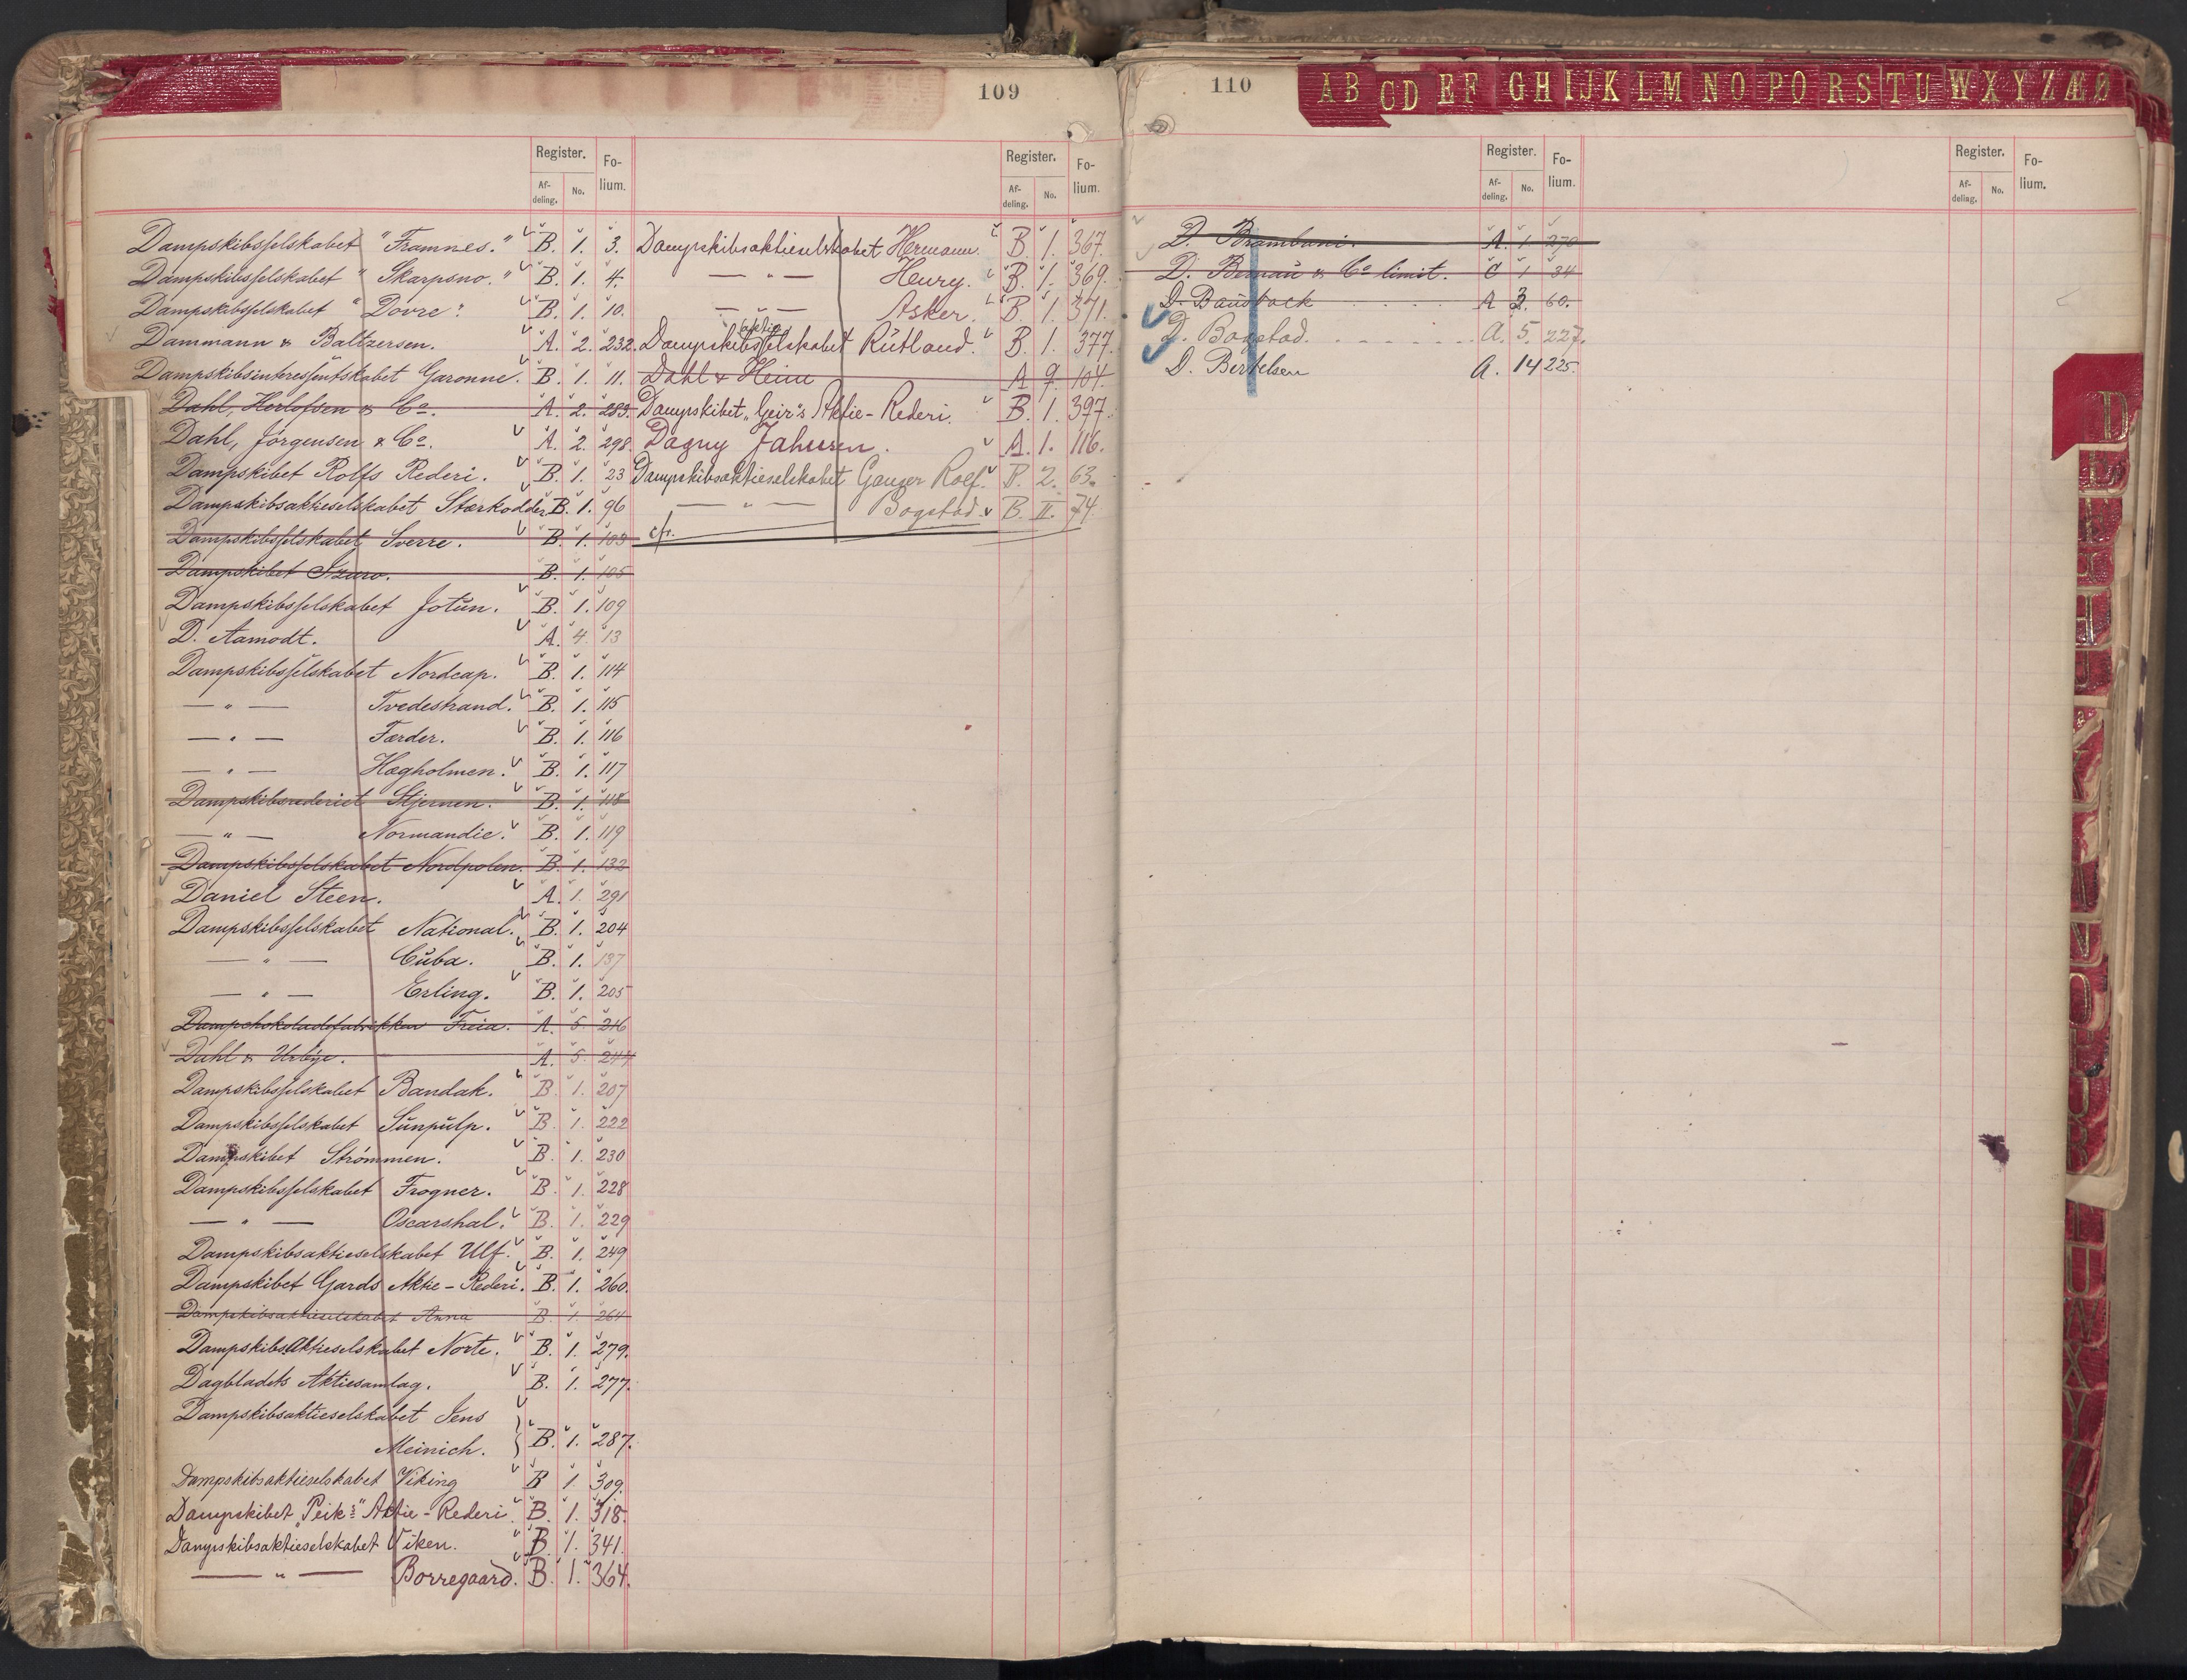 109
Register. Folium. Register. Folium.
Afdeling. No. Afdeling. No.
Dampskibsselskabet "Framnes." B. 1. 3.
Dampskibsselskabet "Skarpsno." B. 1. 4.
Dampskibsselskabet "Dovre". B. 1. 10.
Dammann & Baltzersen. A. 2. 232.
Dampskibsinteressentskabet Garonne. B. 1. 11.
Dahl, Herlofsen & Co. A. 2. 283.
Dahl, Jørgensen & Co. A. 2. 298.
Dampskibet Rolfs Rederi. B. 1. 23
Dampskibsaktieselskabet Stærkodder B. 1. 96
Dampskibsselskabet Sverre. B. 1. 103
Dampskibet B. 1. 105
Dampskibsselskabet Jotün. B. 1. 109
D. Aamodt. A. 4. 13
Dampskibsselskabet Nordcap. B. 1. 114
— " — Tvedestrand. B. 1. 115
— " — Færder. B. 1. 116
— " — Hægholmen. B. 1. 117
Dampskibsrederiet Stjernen. B. 1. 118
— " — Normandie. B. 1. 119
Dampskibsselskabet Nordpolen. B. 1. 132
Daniel Steen. A. 1. 291
Dampskibsselskabet National. B. 1. 204
— " — Cüba. B. 1. 137
— " — Erling. B. 1. 205
Dampchokoladefabrikken Freia. A. 5. 216
Dahl & Urbye. A. 5. 244
Dampskibsselskabet Bandak. B. 1. 207
Dampskibsselskabet Sünpülp. B. 1. 222
Dampskibet Strømmen. B. 1. 230
Dampskibsselskabet Frogner. B. 1. 228
— " — Oscarshal. B. 1. 229
Dampskibsaktieselskabet Ulf. B. 1. 249
Dampskibet Gards Aktie-Rederi. B. 1. 260.
Dampskibsaktieselskabet Anna B. 1. 264
DampskibsAktieselskabet Norte. B. 1. 279.
Dagbladets Aktiesamlag. B. 1. 277.
Dampskibsaktieselskabet Jens
Meinich. } B. 1. 287.
Dampskibsaktieselskabet Viking B 1. 309.
Dampskibet "Peik"s Aktie-Rederi. B. 1. 318.
Dampskibsaktieselskabet Viken. B. 1. 341.
— " — Borregaard. B. 1. 364.
Dampskibsaktieselskabet Hermann. B. 1. 367.
— " — Henry. B. 1. 369.
— " — Asker. B. 1. 371.
aktie
Dampskibsselskabet Rütland. B. 1. 377.
Dahl & Heim A 9. 104.
Dampskibet "Geir"s Aktie-Rederi. B. 1. 397.
Dagny Jahnsen. A. 1. 116.
Dampskibsaktieselskabet Ganger Rolf. B. 2. 63.
— " — Bogstad. B. II. 74.
cfr.
110
AB CD EF GH IJK LM NO PQ RS TU WX YZ ÆØ
Register. Folium. Register. Folium.
Afdeling. No. Afdeling. No.
D. Brambani. A. 1 270
D. & Co limit. C 1 34
D. A 3. 60.
D. Bogstad. A. 5. 227.
D. Bertelsen A. 14 225.
D